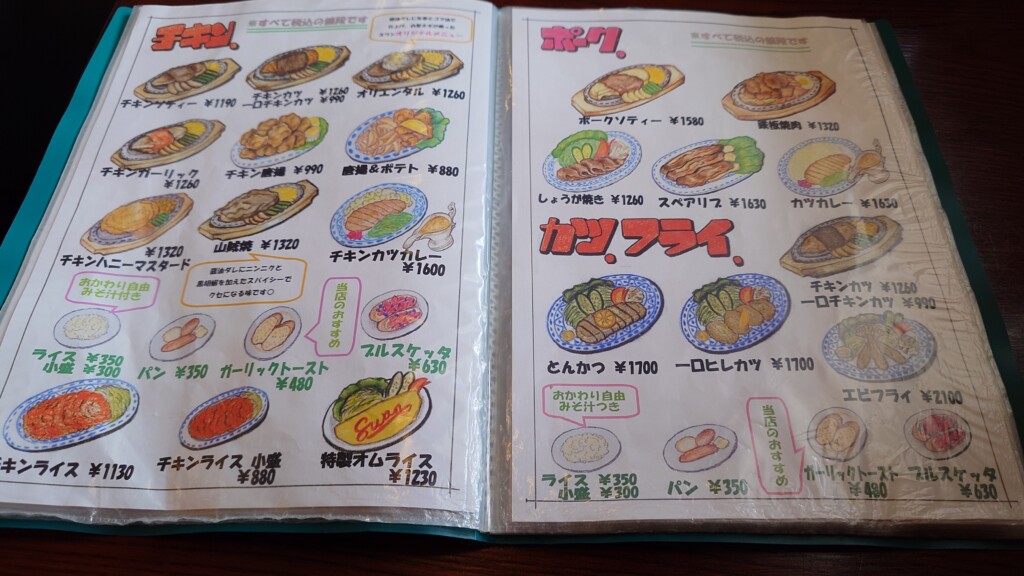 チキン.
※すべて税込の価格です
オリジナルメニュー
チキンソティー ¥1190
チキンカツ ¥1260
一口チキンカツ ¥990
オリエンタル ¥1260
チキンガーリック
¥1260
チキン唐揚 ¥990
唐揚&ポテト ¥880
¥1320
チキンハニーマスタード
山賊焼 ¥1320
チキンカツカレー
¥1600
おかわり自由
みそ汁付き
醤油ダレにニンニクと
黒胡椒を加えたスパイシーで
クセになる味です○
当店のおすすめ
ライス ¥350
小盛 ¥300
パン ¥350
ガーリックトースト
¥480
ブルスケッタ
¥630
チキンライス ¥1130
チキンライス 小盛
¥880
特製オムライス
¥1230
ポーク.
※すべて税込の価格です
ポークソティー ¥1580
鉄板焼肉 ¥1320
しょうが焼き ¥1260
スペアリブ ¥1630
カツカレー ¥1650
カツ.フライ.
チキンカツ ¥1260
一口チキンカツ ¥990
とんかつ ¥1700
一口ヒレカツ ¥1700
エビフライ ¥2100
おかわり自由
みそ汁つき
当店のおすすめ
ライス ¥350
小盛 ¥300
パン ¥350
ガーリックトースト
¥480
ブルスケッタ
¥630